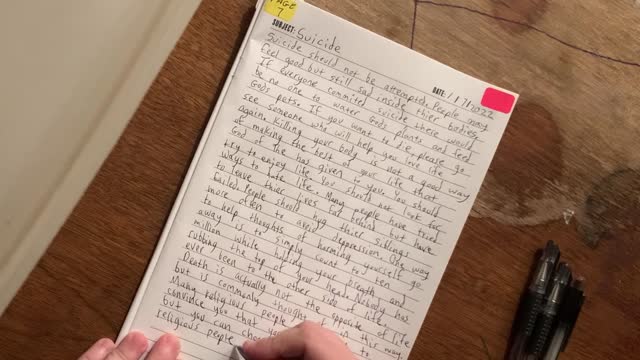 PAGE 7
SUBJECT: Suicide
DATE: 1/17/2022
Suicide should not be attempted. People may
feel good but still sad inside thier bodies.
If everyone commited suicide there would
be no one to water Gods plants and feed
Gods pets. If you want to die, please go
see someone who will help you love life
again. Killing your body is not a good way
of making the best of your life that
God of the has given to you. You should
try to enjoy life. You should not look for
ways to hate life. Many people have tried
to leave thier lives far behind but have
failed. People should hug thier siblings
more often to avoid depression. One way
to help thoughts of harming yourself go
away is to simply count to ten
million while holding your breath and
rubbing the top of your head. Nobody has
ever been to the other side of life.
Death is actually not the opposite of life
but is commonly thought of in this way.
Many religious people can to
convince you that you
but you can choo
religious people